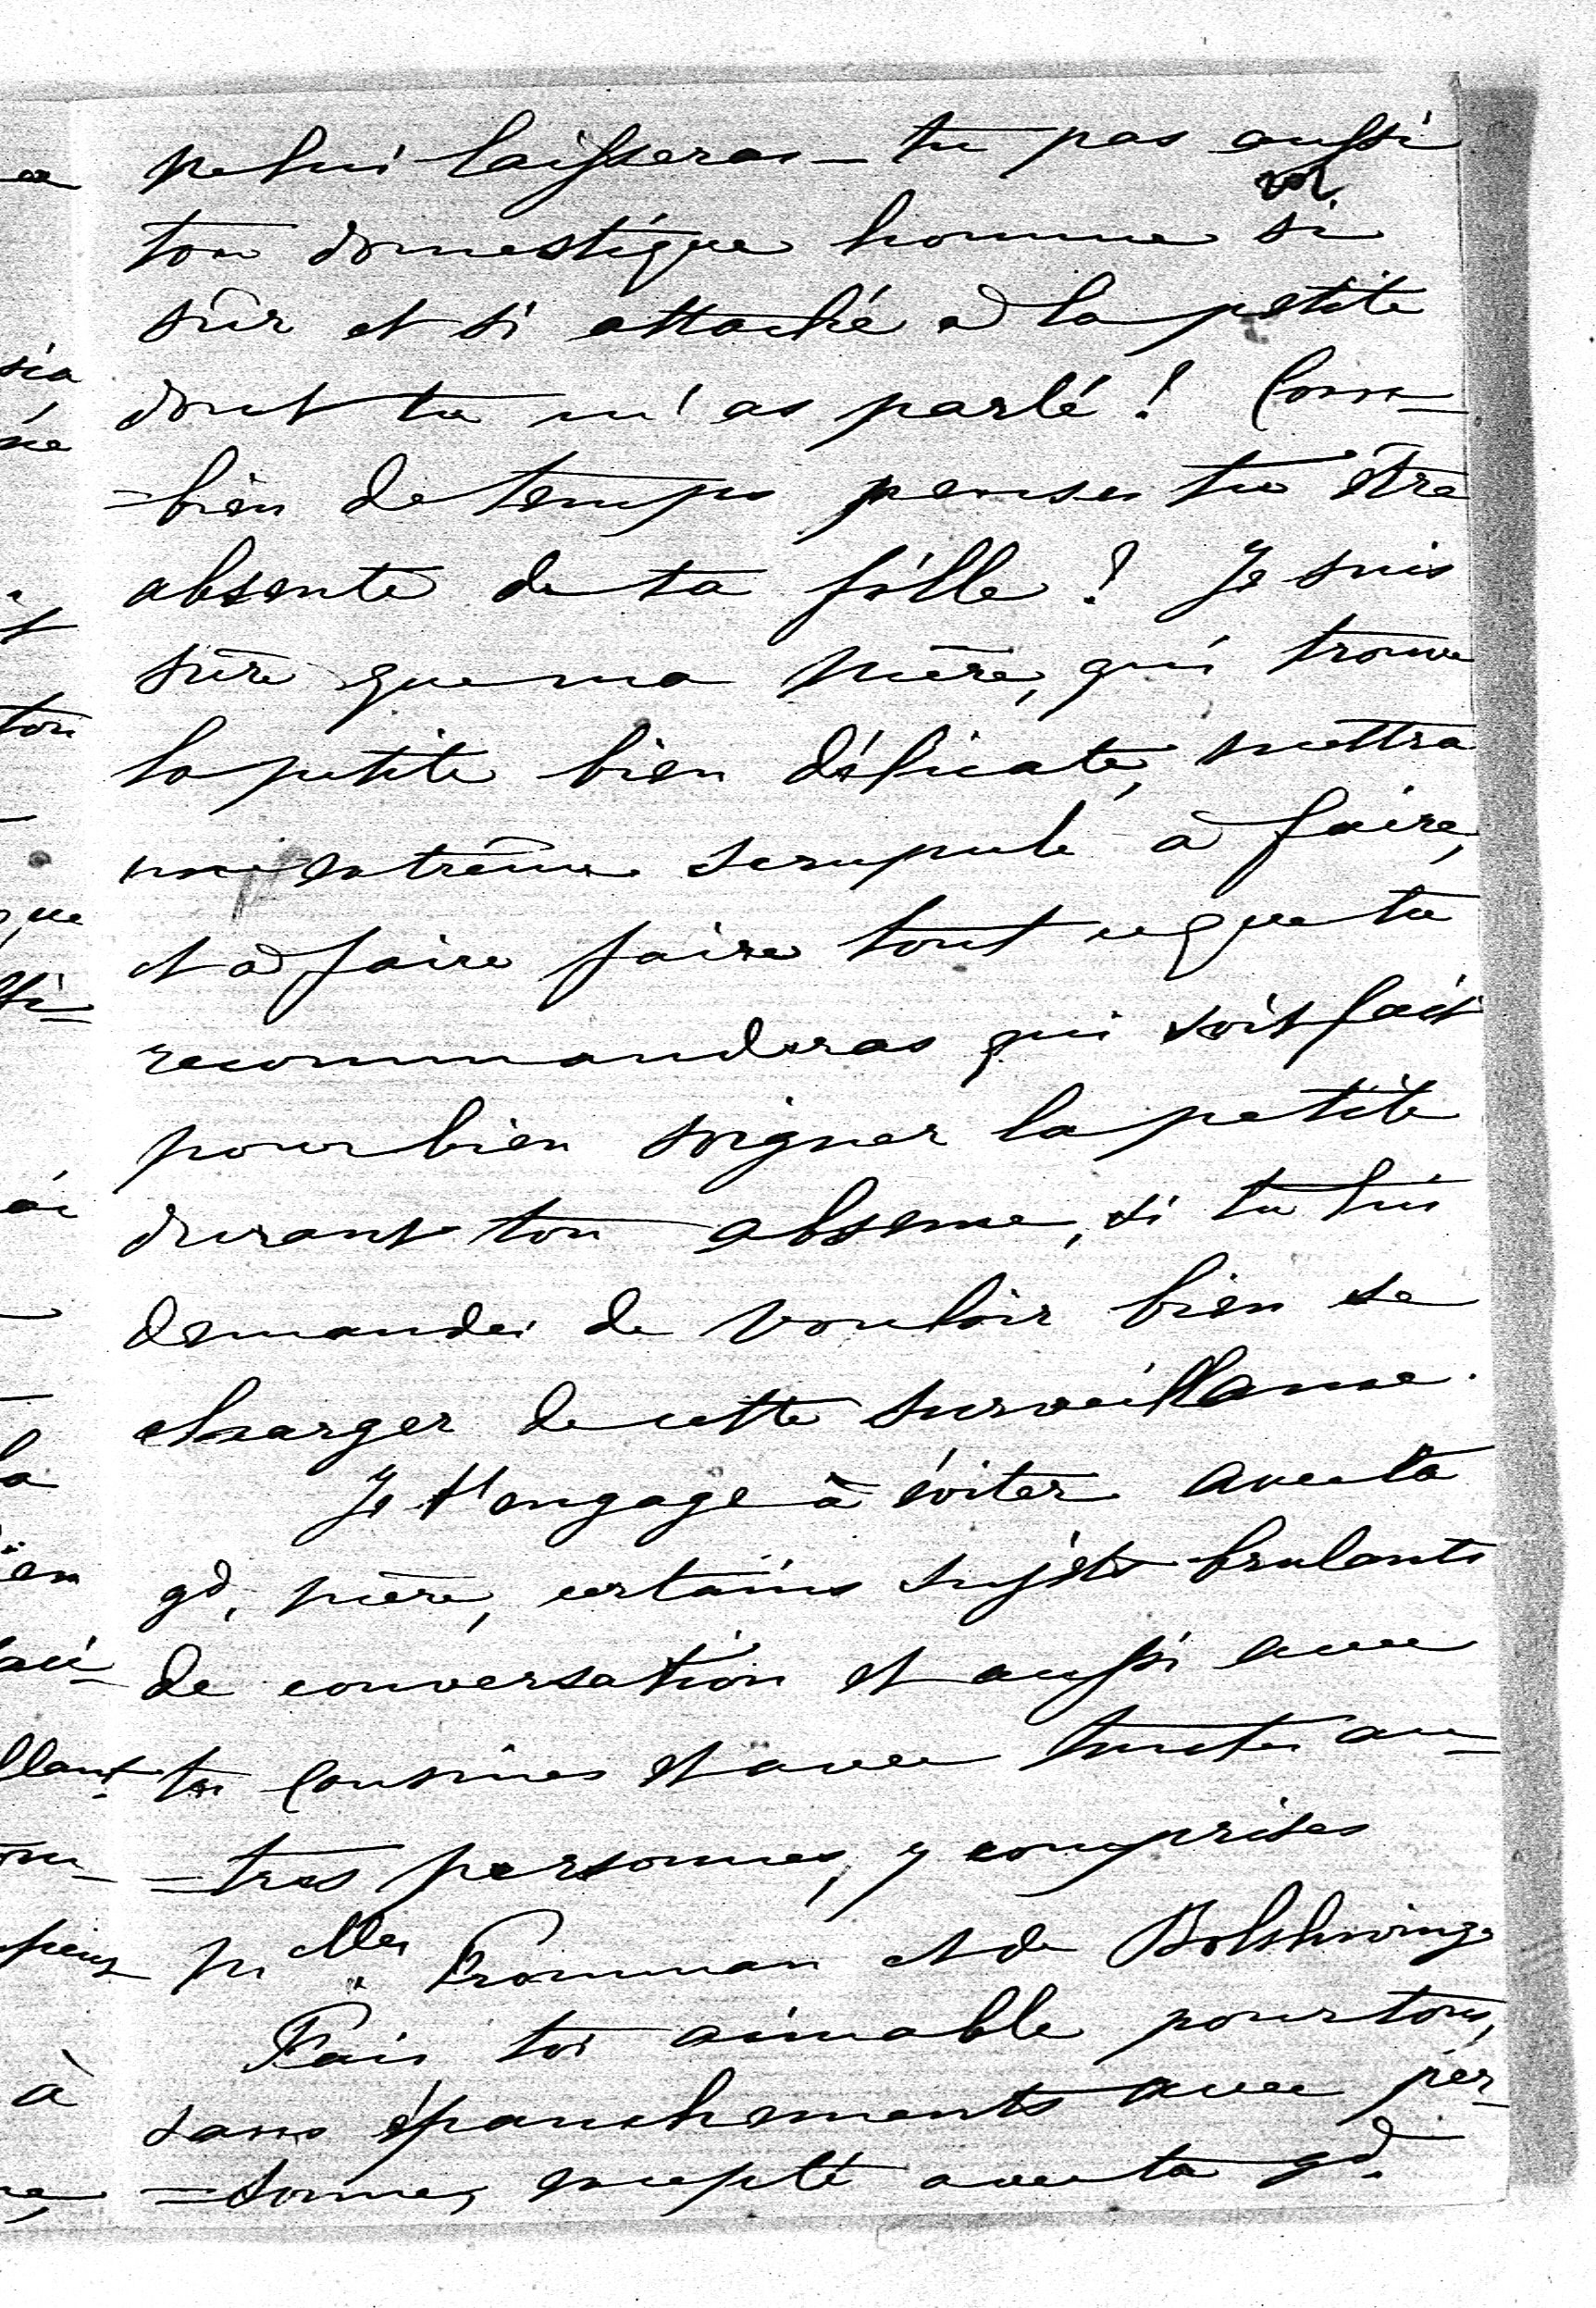 ne lui laisseras-tu pas aussi
ton domestique homme si
sûr et si attaché à la petite
dont tu m'as parlé! Com-
=bien de temps penses tu être
absente de ta fille? Je suis
sûre que ma mère, qui trouve
la petite bien délicate, mettra
un extrême scrupule à faire,
et à faire faire tout ce que tu
recommanderas qui soit fait
pour bien soigner la petite
durant ton absence, si tu lui
demandes de vouloir bien se
charger de cette surveillance.
Je t'engage à éviter avec ta
gd. mère, certains sujets brulants
de conversation et aussi avec
tes cousines et avec toutes au-
=tres personnes, y comprises
Mlles Fromman et de Bolshwing.
Fais toi aimable pour tous,
sans épanchements avec per-
=sonne, excepté avec ta gd.